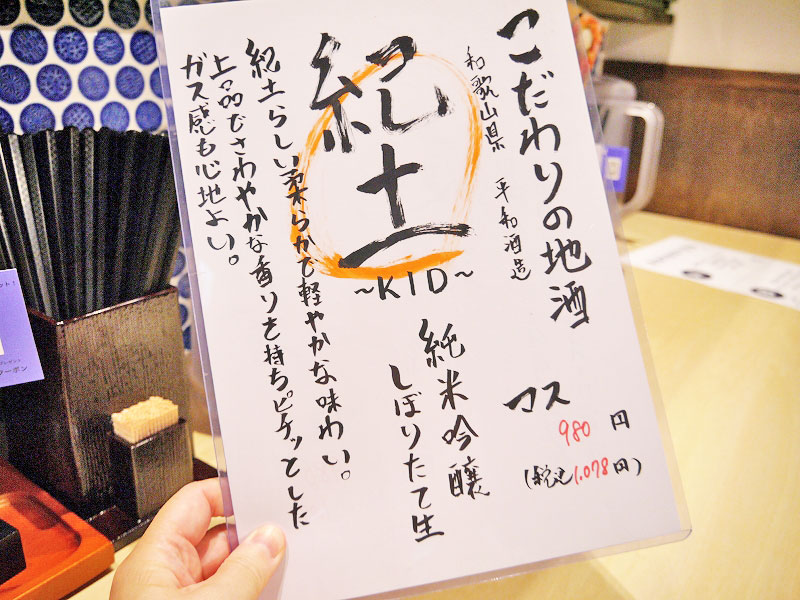 こだわりの地酒
和歌山県 平和酒造
紀土
~KID~
純米吟醸
しぼりたて生
マス
980円
(税込1,078円)
紀土らしい柔らかで軽やかな味わい。
上品でさわやかな香りを持ちピチッとした
ガス感も心地よい。